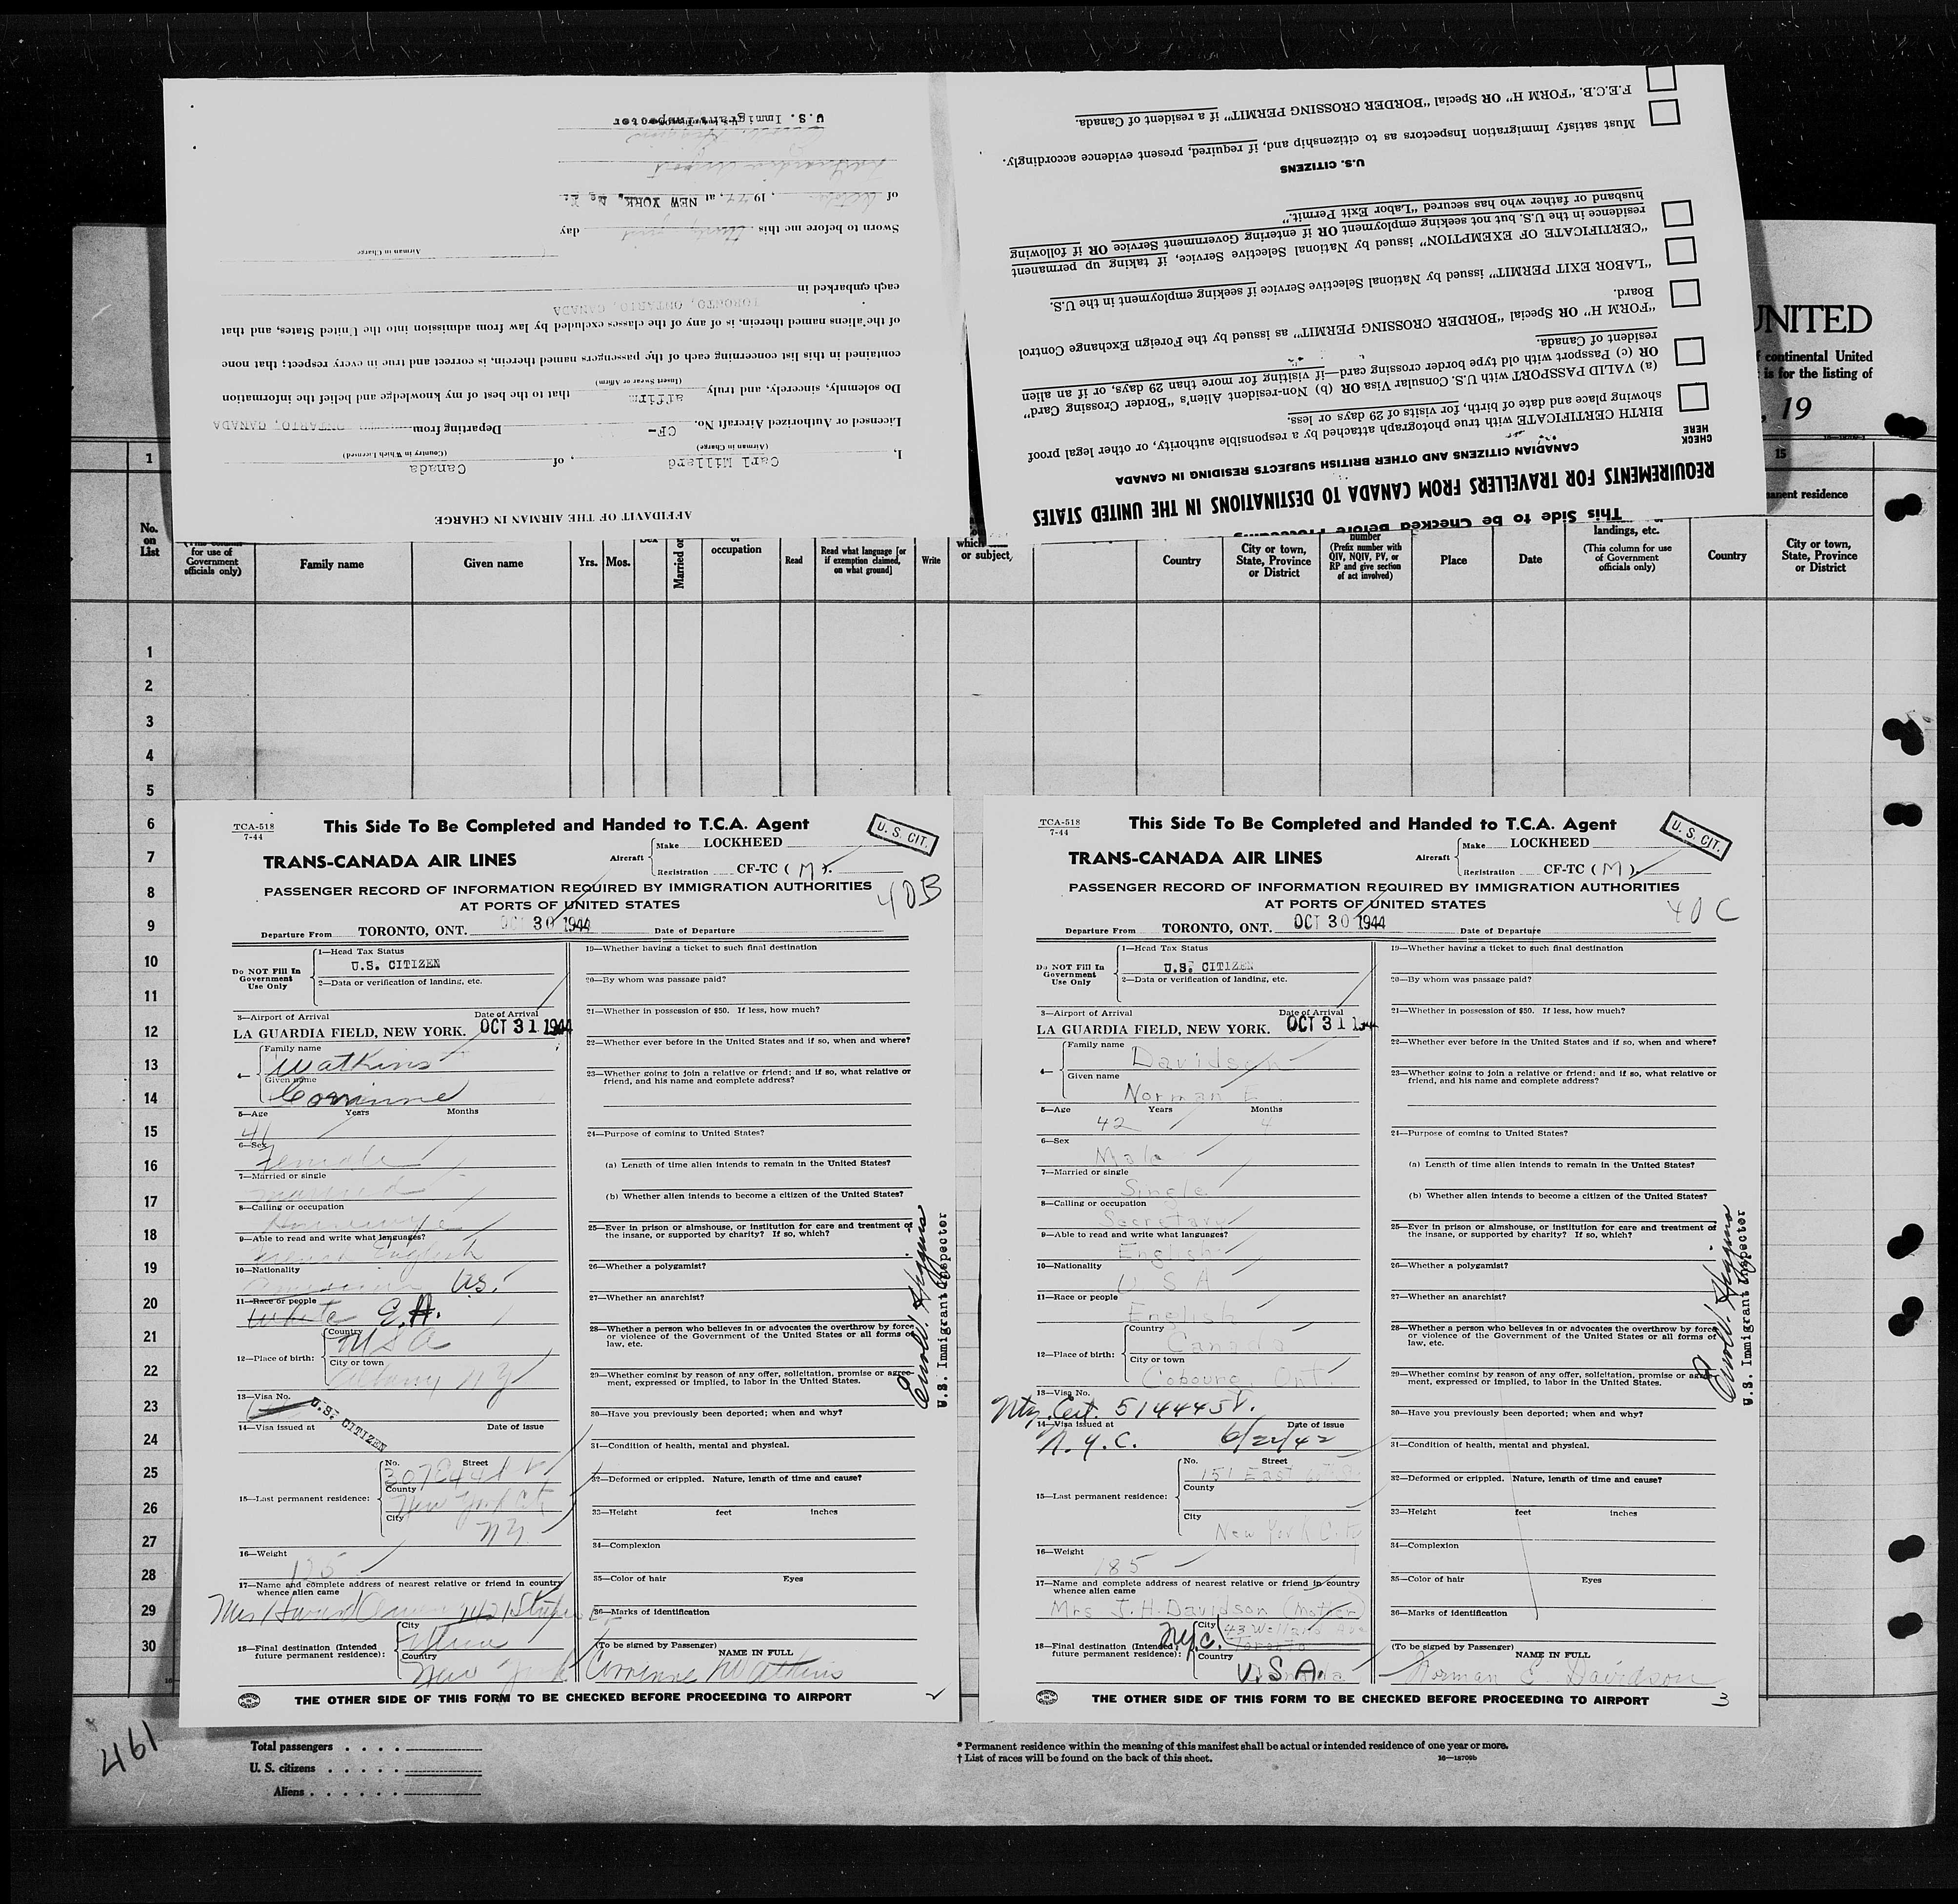 AFFIDAVIT OF THE AIRMAN IN CHARGE
I, Carl Millard, of Canada
(Airman in Charge) (Country in Which Licensed)
Licensed or Authorized Aircraft No. CF- Departing from ONTARIO, CANADA
Do solemnly, sincerely, and truly affirm that to the best of my knowledge and belief the information
(Insert Swear or Affirm)
contained in this list concerning each of the passengers named therein, is correct and true in every respect; that none
of the aliens named therein, is of any of the classes excluded by law from admission into the United States, and that
TORONTO, ONTARIO, CANADA
each embarked in
Airman in Charge
Sworn to before me this day
of October, 19 , at NEW YORK, N. Y.
U.S. Immigrant Inspector
This Side to be Checked Before Proceeding
REQUIREMENTS FOR TRAVELLERS FROM CANADA TO DESTINATIONS IN THE UNITED STATES
CHECK
HERE
CANADIAN CITIZENS AND OTHER BRITISH SUBJECTS RESIDING IN CANADA
BIRTH CERTIFICATE with true photograph attached by a responsible authority, or other legal proof
showing place and date of birth, for visits of 29 days or less.
(a) VALID PASSPORT with U.S. Consular Visa OR (b) Non-resident Alien's "Border Crossing Card"
OR (c) Passport with old type border crossing card—if visiting for more than 29 days, or if an alien
resident of Canada.
"FORM H" OR Special "BORDER CROSSING PERMIT" as issued by the Foreign Exchange Control
Board.
"LABOR EXIT PERMIT" issued by National Selective Service if seeking employment in the U.S.
"CERTIFICATE OF EXEMPTION" issued by National Selective Service, if taking up permanent
residence in the U.S. but not seeking employment OR if entering Government Service OR if following
husband or father who has secured "Labor Exit Permit."
U.S. CITIZENS
Must satisfy Immigration Inspectors as to citizenship and, if required, present evidence accordingly.
F.E.C.B. "FORM H" OR Special "BORDER CROSSING PERMIT" if a resident of Canada.
UNITED
continental United
is for the listing of
, 19
1
15
permanent residence
No.
on
List
for use of
Government
officials only)
Family name
Given name
Yrs.
Mos.
Married or
occupation
Read
Read what language [or
if exemption claimed,
on what ground]
Write
which
or subject,
Country
City or town,
State, Province
or District
number
(Prefix number with
QIV, NQIV, PV, or
RP and give section
of act involved)
Place
Date
landings, etc.
(This column for use
of Government
officials only)
Country
City or town,
State, Province
or District
1
2
3
4
5
6
7
8
9
10
11
12
13
14
15
16
17
18
19
20
21
22
23
24
25
26
27
28
29
30
TCA-518
7-44
This Side To Be Completed and Handed to T.C.A. Agent
U. S. CIT.
TRANS-CANADA AIR LINES
Aircraft Make LOCKHEED
Registration CF-TC (M).
PASSENGER RECORD OF INFORMATION REQUIRED BY IMMIGRATION AUTHORITIES
AT PORTS OF UNITED STATES
40B
Departure From TORONTO, ONT. OCT 30 1944 Date of Departure
Do NOT Fill In
Government
Use Only
1—Head Tax Status
U.S. CITIZEN
2—Data or verification of landing, etc.
3—Airport of Arrival Date of Arrival
LA GUARDIA FIELD, NEW YORK. OCT 31 1944
4— Family name
Watkins
Given name
Corrinne
5—Age Years Months
41
6—Sex
Female
7—Married or single
Married
8—Calling or occupation
Housewife
9—Able to read and write what languages?
English
10—Nationality
U.S.
11—Race or people
White
12—Place of birth:
Country
USA
City or town
Albany NY
13—Visa No.
U.S. CITIZEN
14—Visa issued at Date of issue
15—Last permanent residence:
No. Street
County
New York City
City
NY
16—Weight
17—Name and complete address of nearest relative or friend in country
whence alien came
18—Final destination (Intended
future permanent residence):
City
Country
New York
19—Whether having a ticket to such final destination
20—By whom was passage paid?
21—Whether in possession of $50. If less, how much?
22—Whether ever before in the United States and if so, when and where?
23—Whether going to join a relative or friend; and if so, what relative or
friend, and his name and complete address?
24—Purpose of coming to United States?
(a) Length of time alien intends to remain in the United States?
(b) Whether alien intends to become a citizen of the United States?
25—Ever in prison or almshouse, or institution for care and treatment of
the insane, or supported by charity? If so, which?
26—Whether a polygamist?
27—Whether an anarchist?
28—Whether a person who believes in or advocates the overthrow by force
or violence of the Government of the United States or all forms of
law, etc.
29—Whether coming by reason of any offer, solicitation, promise or agree-
ment, expressed or implied, to labor in the United States.
30—Have you previously been deported; when and why?
31—Condition of health, mental and physical.
32—Deformed or crippled. Nature, length of time and cause?
33—Height feet inches
34—Complexion
35—Color of hair Eyes
36—Marks of identification
(To be signed by Passenger) NAME IN FULL
Corrinne Watkins
U.S. Immigrant Inspector
THE OTHER SIDE OF THIS FORM TO BE CHECKED BEFORE PROCEEDING TO AIRPORT
2
TCA-518
7-44
This Side To Be Completed and Handed to T.C.A. Agent
U. S. CIT.
TRANS-CANADA AIR LINES
Aircraft Make LOCKHEED
Registration CF-TC (M).
PASSENGER RECORD OF INFORMATION REQUIRED BY IMMIGRATION AUTHORITIES
AT PORTS OF UNITED STATES
40C
Departure From TORONTO, ONT. OCT 30 1944 Date of Departure
Do NOT Fill In
Government
Use Only
1—Head Tax Status
U.S. CITIZEN
2—Data or verification of landing, etc.
3—Airport of Arrival Date of Arrival
LA GUARDIA FIELD, NEW YORK. OCT 31 1944
4— Family name
Davidson
Given name
Norman E.
5—Age Years Months
42 4
6—Sex
Male
7—Married or single
Single
8—Calling or occupation
Secretary
9—Able to read and write what languages?
English
10—Nationality
U S A
11—Race or people
English
12—Place of birth:
Country
Canada
City or town
Cobourg, Ont.
13—Visa No.
Ntz. Cert. 5144458.
14—Visa issued at Date of issue
N.Y.C. 6/22/42
15—Last permanent residence:
No. Street
151 East
County
City
New York City
16—Weight
185
17—Name and complete address of nearest relative or friend in country
whence alien came
Mrs J. H. Davidson (Mother)
18—Final destination (Intended
future permanent residence):
N.Y.C.
City
43 Ave
Toronto
Country
U.S.A.
19—Whether having a ticket to such final destination
20—By whom was passage paid?
21—Whether in possession of $50. If less, how much?
22—Whether ever before in the United States and if so, when and where?
23—Whether going to join a relative or friend; and if so, what relative or
friend, and his name and complete address?
24—Purpose of coming to United States?
(a) Length of time alien intends to remain in the United States?
(b) Whether alien intends to become a citizen of the United States?
25—Ever in prison or almshouse, or institution for care and treatment of
the insane, or supported by charity? If so, which?
26—Whether a polygamist?
27—Whether an anarchist?
28—Whether a person who believes in or advocates the overthrow by force
or violence of the Government of the United States or all forms of
law, etc.
29—Whether coming by reason of any offer, solicitation, promise or agree-
ment, expressed or implied, to labor in the United States.
30—Have you previously been deported; when and why?
31—Condition of health, mental and physical.
32—Deformed or crippled. Nature, length of time and cause?
33—Height feet inches
34—Complexion
35—Color of hair Eyes
36—Marks of identification
(To be signed by Passenger) NAME IN FULL
Norman E Davidson
U.S. Immigrant Inspector
THE OTHER SIDE OF THIS FORM TO BE CHECKED BEFORE PROCEEDING TO AIRPORT
3
461
Total passengers . . . .
U. S. citizens . . . . .
Aliens . . . . . .
* Permanent residence within the meaning of this manifest shall be actual or intended residence of one year or more.
† List of races will be found on the back of this sheet.